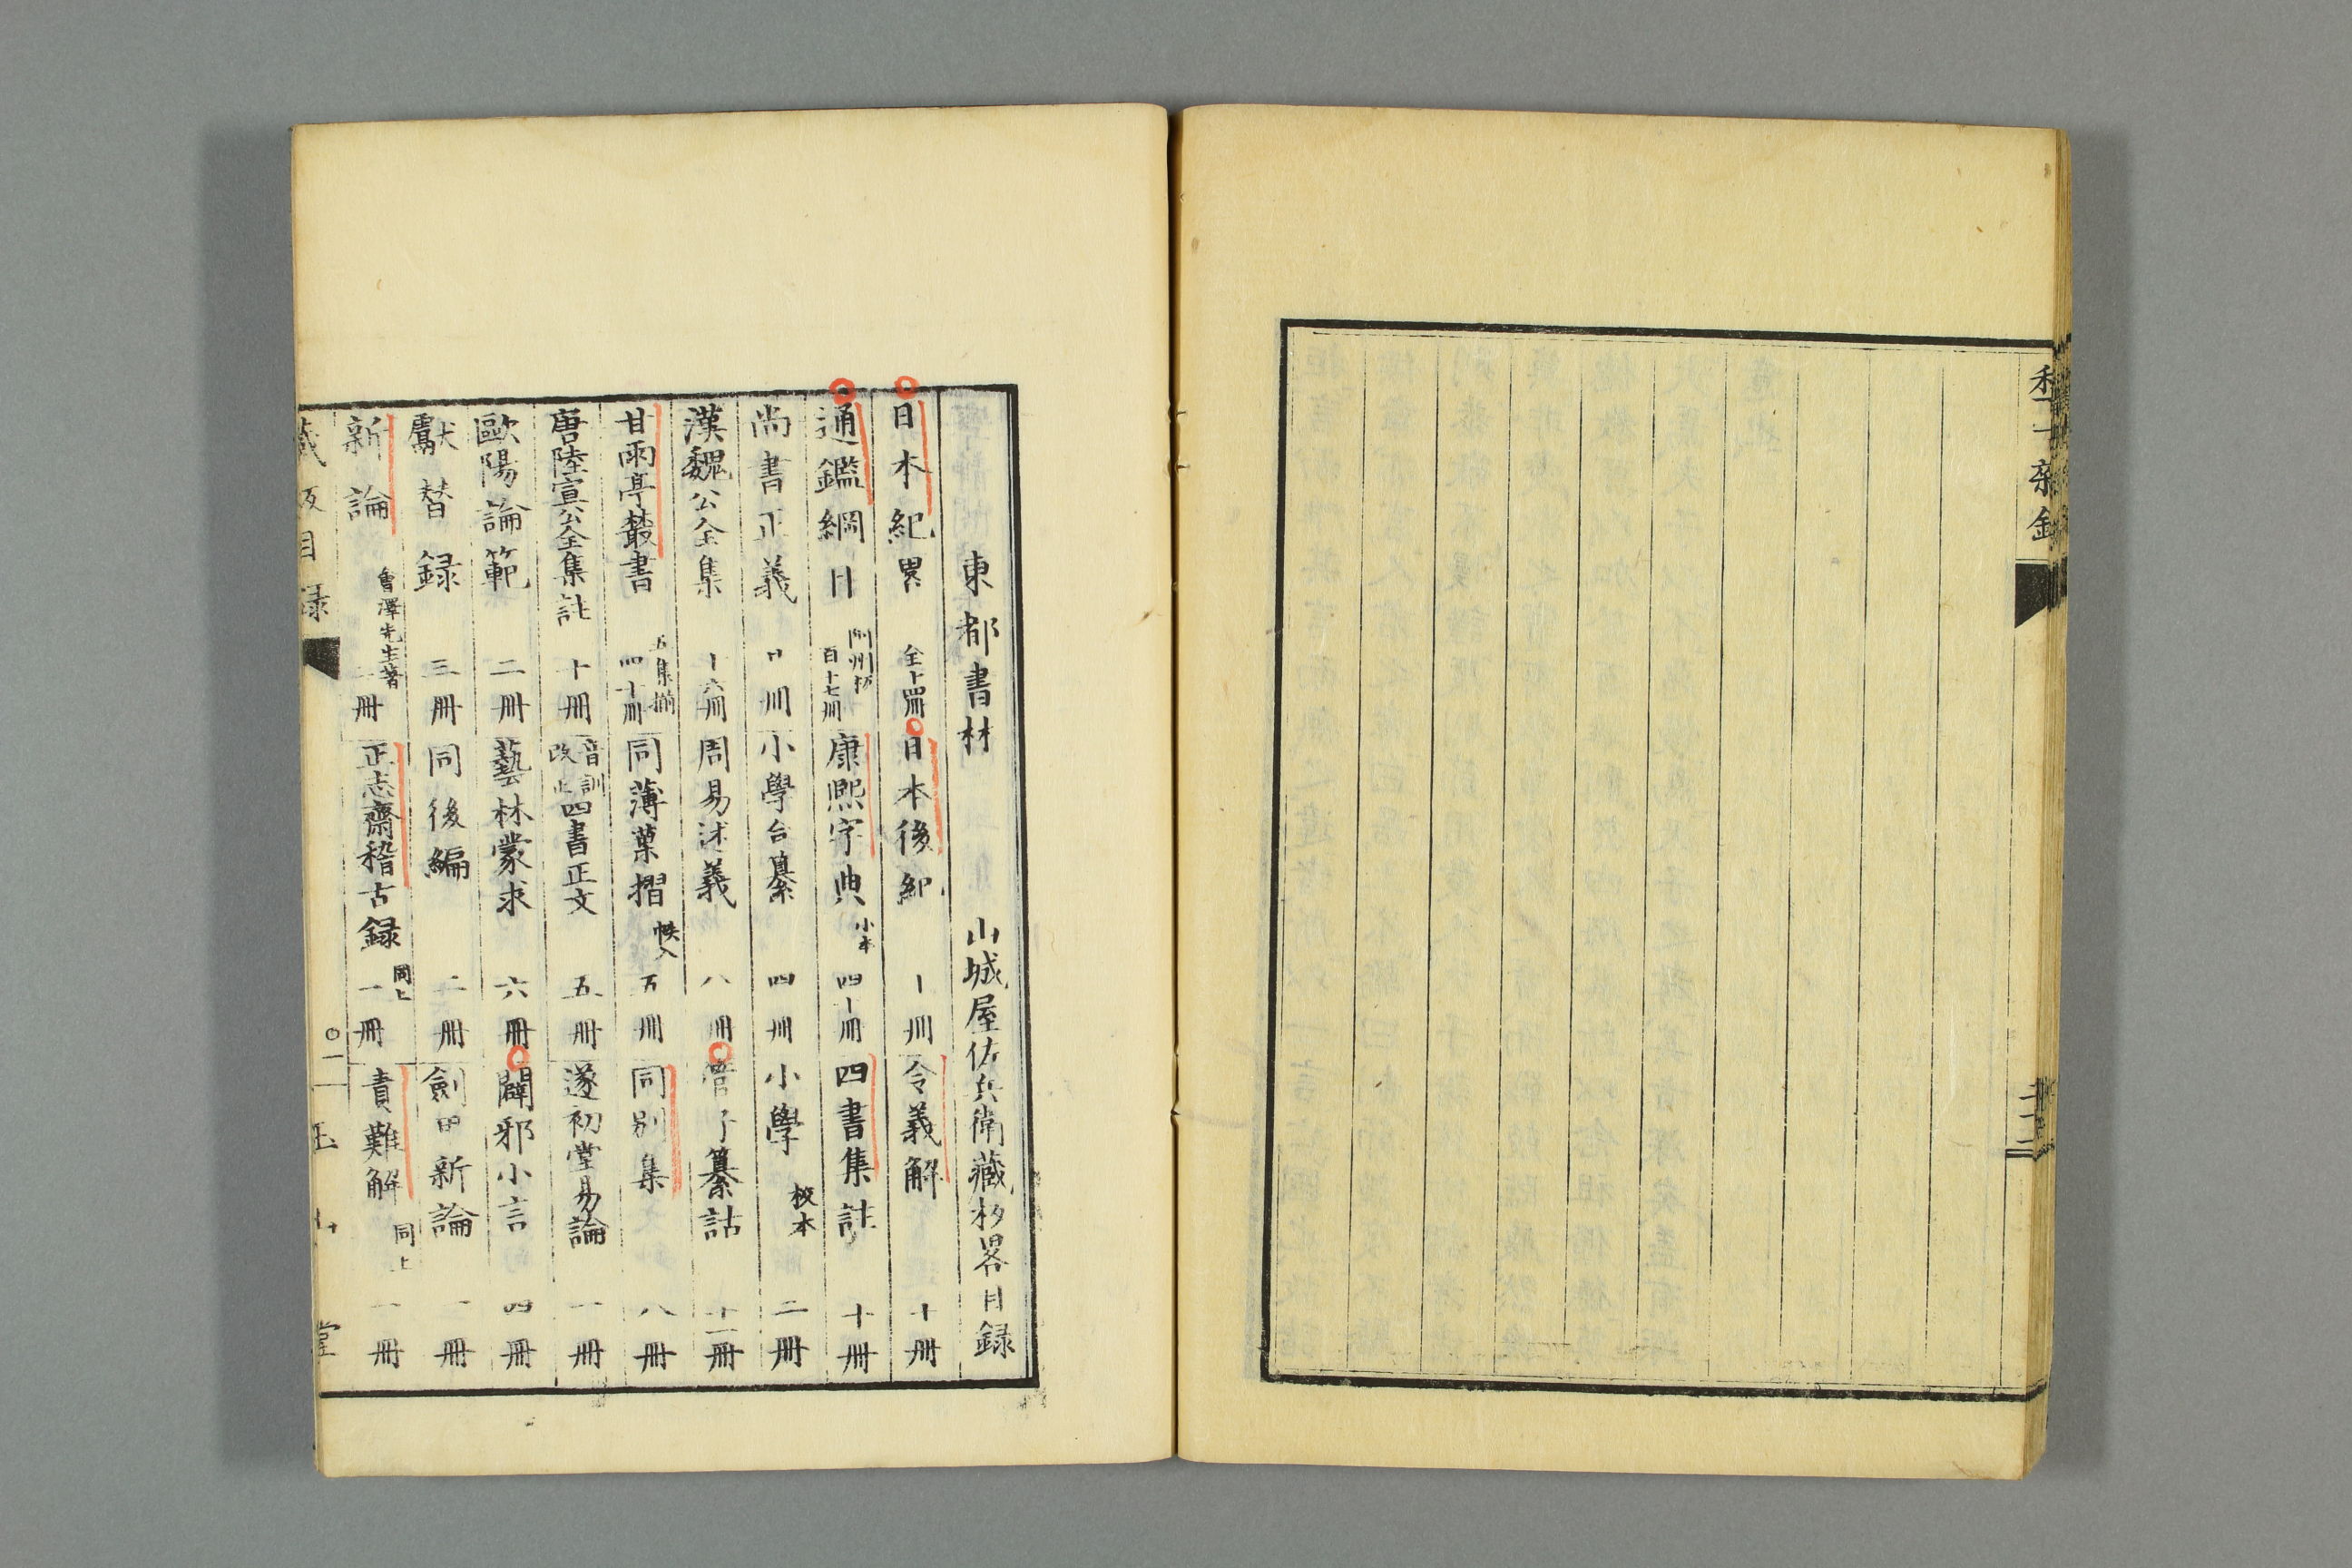 東都書林 山城屋佐兵衛藏板畧目録
日本紀畧 全十四冊 日本後紀 十冊 令義解 十冊
通鑑綱目 百十七冊 康熙字典 小本 四十冊 四書集註 十冊
尚書正義 廿冊 小學合纂 四冊 小學 校本 二冊
漢魏公全集 十六冊 周易述義 八冊 管子纂詁 十二冊
甘雨亭叢書 五集揃 四十冊 同薄葉摺 帙入 五冊 同別集 八冊
唐陸宣公全集註 十冊 音訓改正四書正文 五冊 遂初堂易論 一冊
歐陽論範 二冊 藝林蒙求 六冊 闢邪小言 四冊
獻替録 三冊 同後編 二冊 劍甲新論 一冊
新論 會澤先生著 二冊 正志齋稽古録 同上 一冊 責難解 同上 一冊
藏板目録 ○一 玉山堂